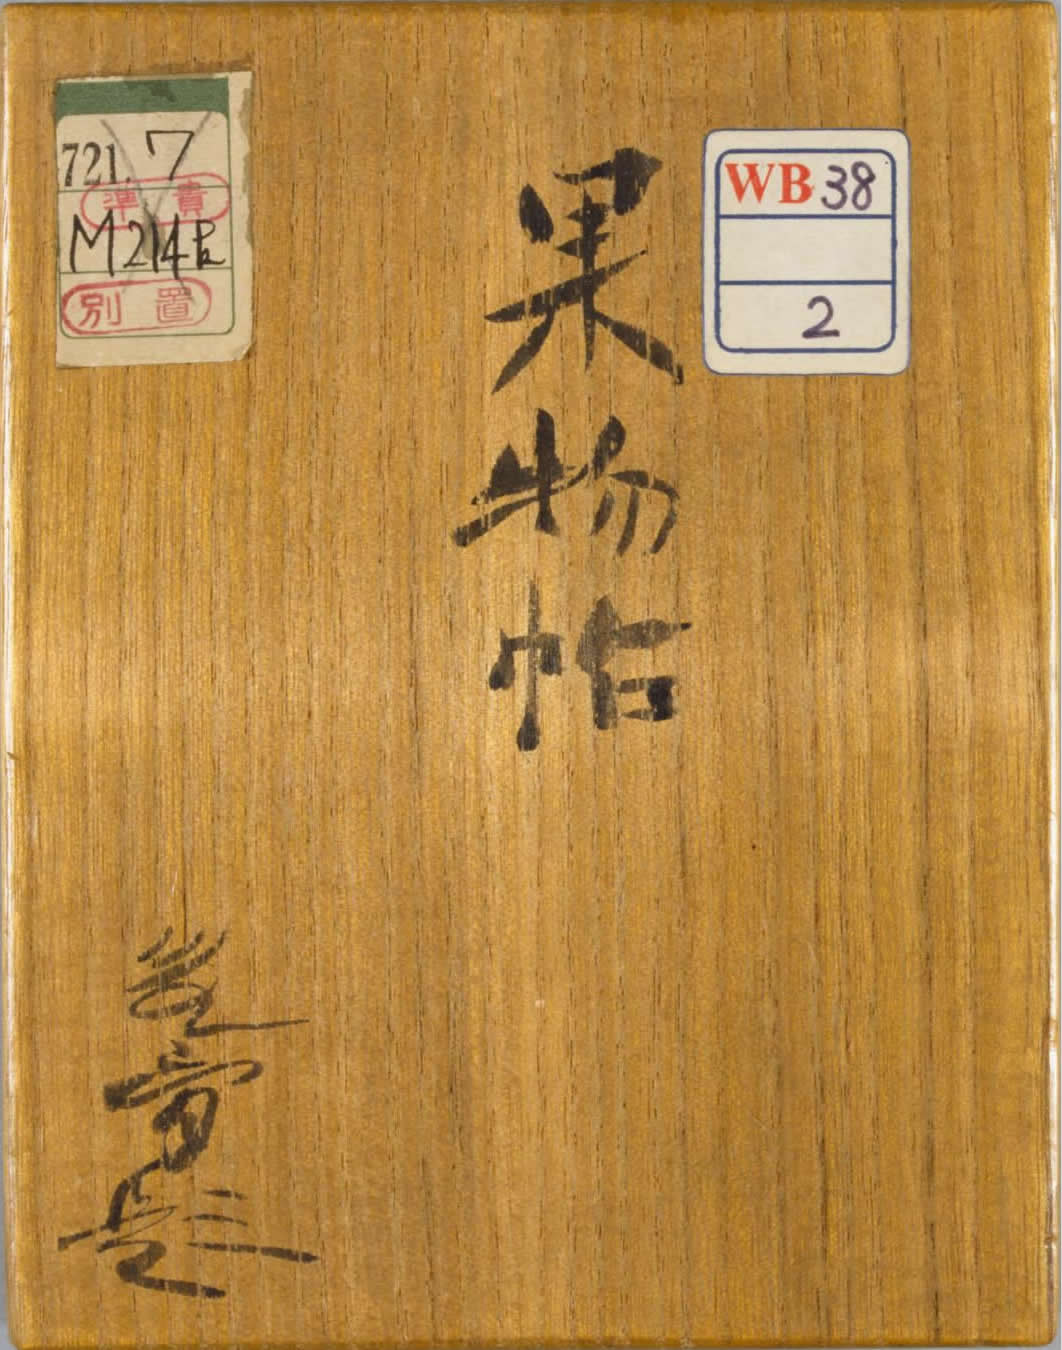 721.7
準貴
M214k
別置
WB38
2
果物帖